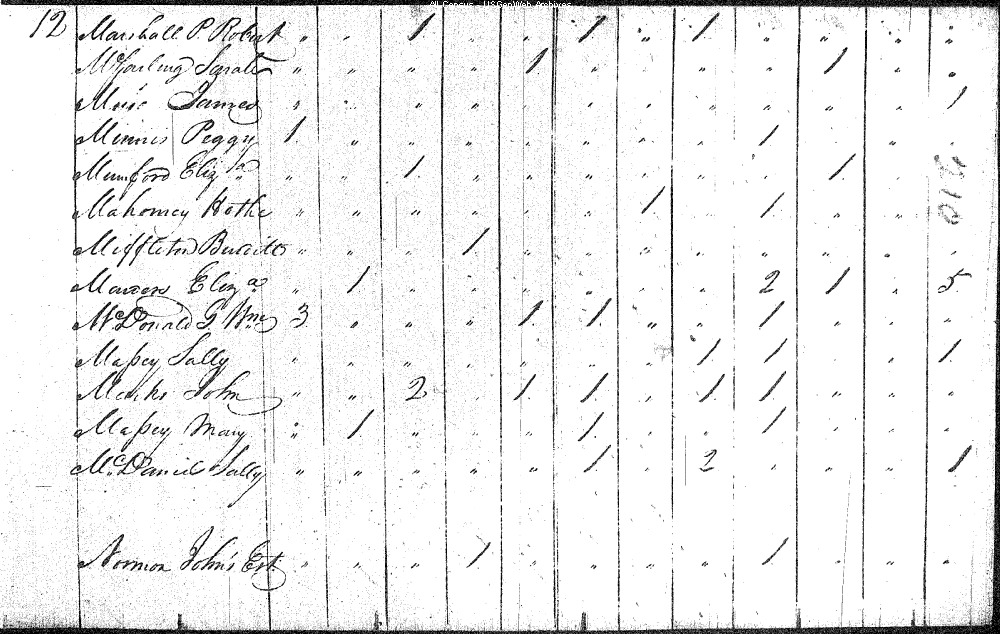 All Census - USGenWeb Archives
12 Marshall P Robert " " 1 " " 1 " 1 " " " "
Sarah " " " " 1 " " " " 1 " "
James " " " " " " " " " " " 1
Minnis Peggy 1 " " " " " " " 1 " " "
Mumford Eliz.a " " 1 " " " " " " 1 " "
Mahomey " " " " " " 1 " 1 " " "
Miffleton Burditt " " " 1 " " " " " " " "
Eliz a " 1 " " " " " " 2 1 " 5
McDonald G Wm 3 " " " 1 1 " " 1 " " "
Maſsey Sally " " " " " " " 1 1 " " 1
Marks John " " 2 " 1 1 " 1 1 " " "
Maſsey Mary " 1 " " " 1 " " 1 " " "
McDaniel Sally " " " " " 1 " 2 " " " 1
Normon John's Est " " " 1 " " " " 1 " " "